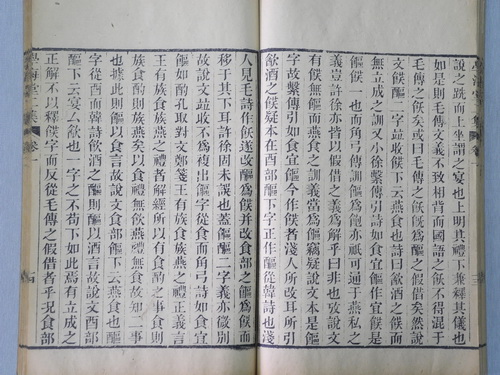 說之跣而上坐謂之宴也上明其禮下兼釋其儀也
如是則毛傳文義不致相背而國語之飫不得混于
毛傳之飫矣或曰毛傳之飫旣爲醧之假借矣然說
文飫醧二字竝收飫下云燕食也詩曰飲酒之飫而
無立成之訓又小徐繫傳引詩如食宜醧作宜飫是
飫醧一也角弓傳而醧爲飽亦祇可通于燕私之
義豈許徐亦皆以假借之義爲解乎曰非也攷說文
有飫無䭇而飫之訓義當爲䭇竊疑說文本是䭇
字故繫傳引詩如食宜䭇今作飫者淺人所改耳所引
飲酒之飫疑本在酉部醧下字正作醧從韓詩也淺
人見毛詩作飫遂改醧爲飫并改食部之䭇爲飫而
移于其下耳許徐固未誤也蓋䭇醧二字義亦微別
故說文竝收不爲複出䭇字從食而角弓詩如食宜
䭇如酌孔取對文鄭箋王有族食族燕之禮正義言
王有族食族燕之禮者解經所以有食酌之事食則
族食酌則族燕矣以食禮無飲燕禮無食故知二事
也據此則䭇以食言故說文食部䭇下云燕食也醧
字從酉而韓詩飲酒之醧則醧以酒言故說文酉部
醧下云宴厶飲也一字之不苟下如此焉有立成之
正解不以釋飫字而反從毛傳之假借者乎況食部
學海堂二集 卷一